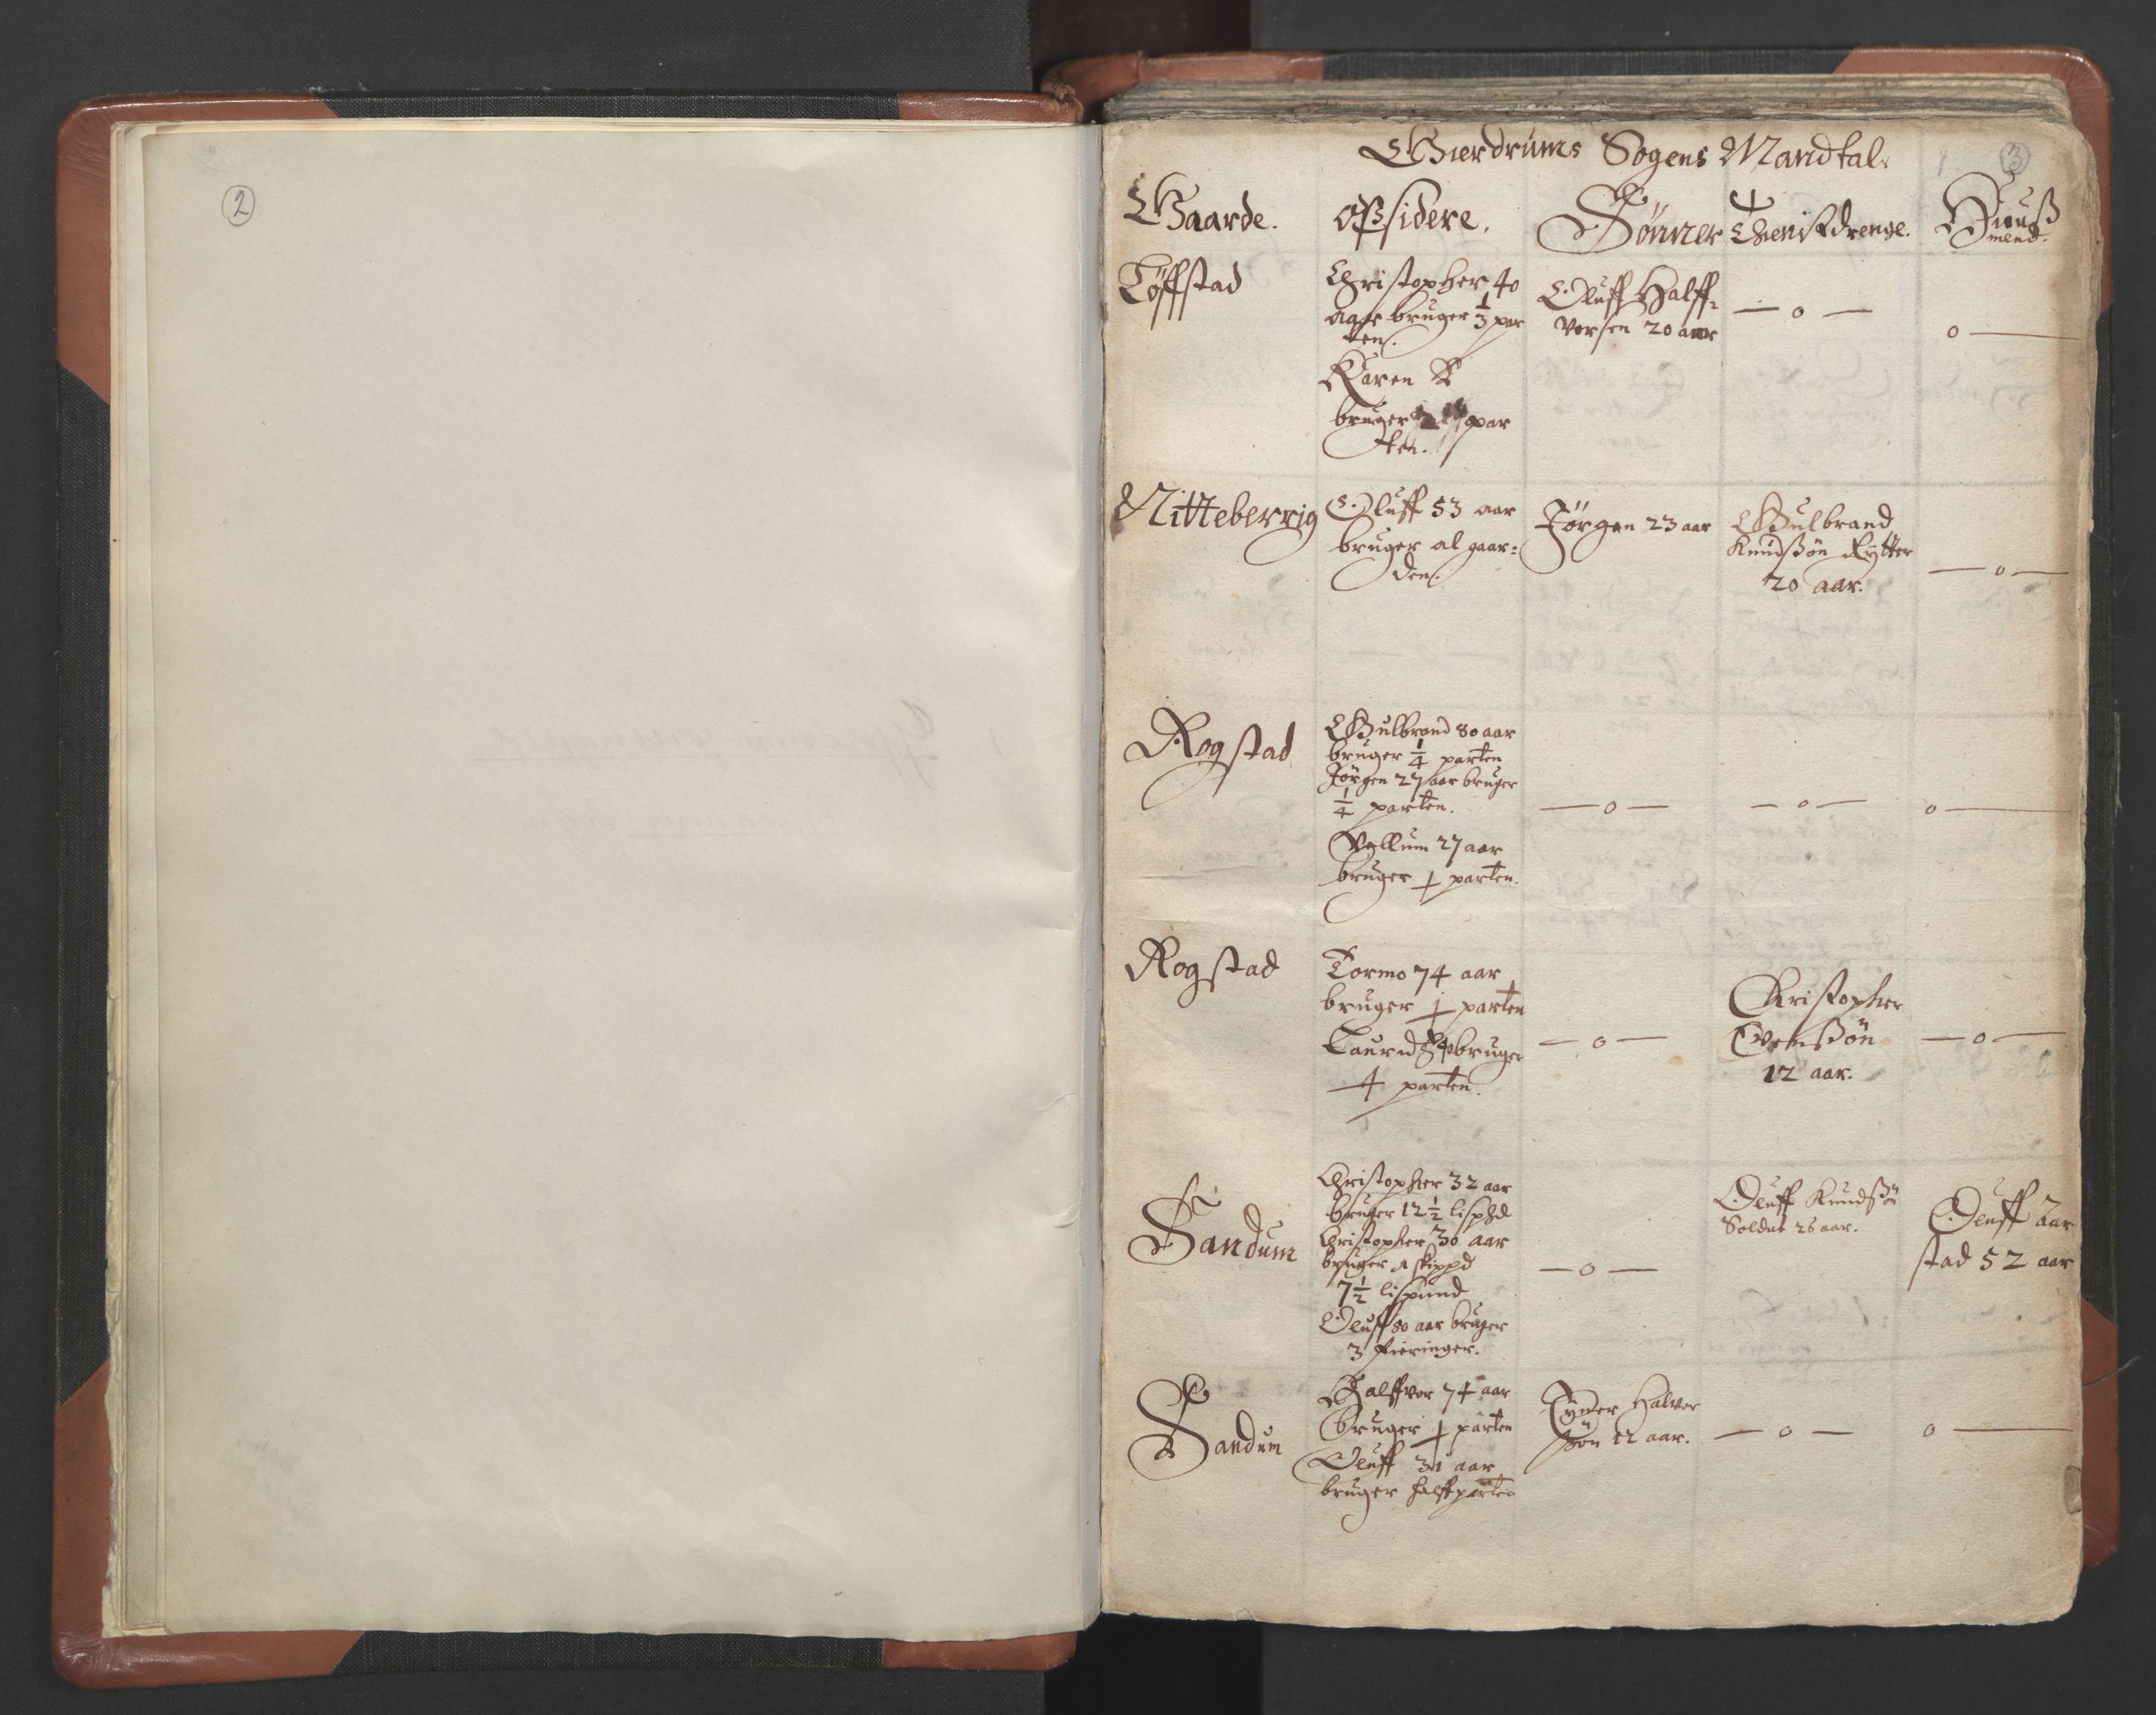 2
3
Gierdrums Sogens Mandtal.
Gaarde.
opsidere.
Sönner
Thienistdrenge.
Huuß
mend.
Löffstad
Christopher 40
aar bruger 1/3 par
ten.
Karen
bruger par
ten.
Oluff Halff-
vorsen 20 aar
— o —
o —
Nitteberrig
Oluff 53 aar
bruger al gaar=
den.
Jörgen 23 aar
Gulbrand
Knudßön Rytter
20 aar.
— o —
Rogstad
Gulbrand 80 aar
bruger 1/4 parten
Jörgen 27 aar bruger
1/4 parten.
Vellum 27 aar
bruger parten.
— o —
— o —
o —
Rogstad
Tormo 74 aar
bruger parten
Laurid bruger
parten.
— o —
Christopher
Evenßön
12 aar.
— o —
Sandum
Christopher 32 aar
bruger 12 1/2 lispd
Christopher 30 aar
bruger 1 skippd
7 1/2 lispund
Oluff 80 aar bruger
3 fieringer.
— o —
Oluff Knudßön
Soldat 26 aar.
Oluff Aar
stad 52 aar
Sandum
Halffvor 74 aar
bruger parten
Oluff 31 aar
bruger halffparten
Halvor
ßön 12 aar.
— o —
o —